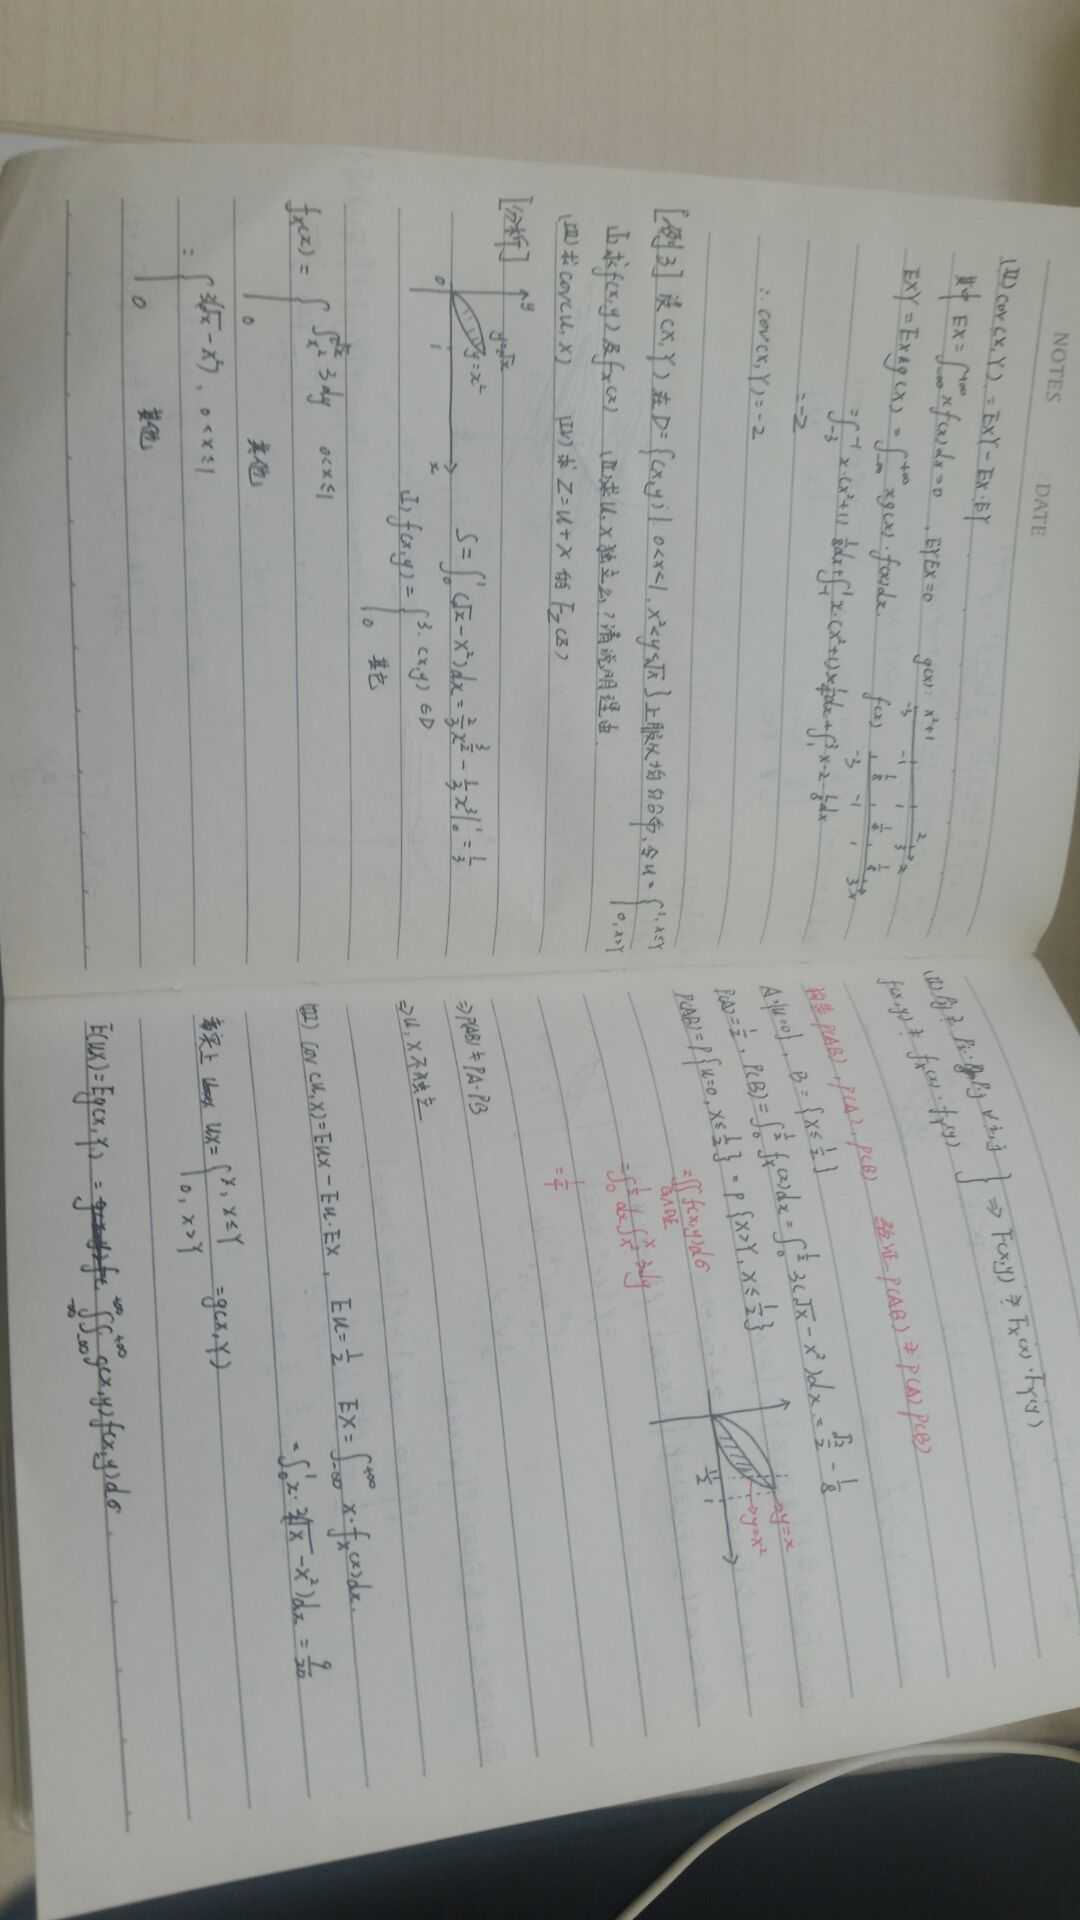 NOTES DATE
(Ⅱ) cov(X,Y) = EXY - EX·EY
其中 EX = ∫_{-∞}^{+∞} x f(x)dx = 0 , EYEX=0
g(x): x²+1 2
-3 -1 1 3 x
EXY = EXg(x) = ∫_{-∞}^{+∞} xg(x)·f(x)dx.
f(x) 1/8 1/8
-3 -1 1 3 x
= ∫_{-3}^{-1} x·(x²+1) 1/8 dx + ∫_{-1}^{1} x·(x²+1)× dx + ∫_{1}^{3} x·2 1/8 dx
= -2
∴ cov(X,Y) = -2
[例3] 设(X,Y)在D={(x,y)| 0<x<1, x²<y≤√x}上服从均匀分布, 令U={1, X≤Y
0, X>Y
(Ⅰ)求f(x,y)及fx(x) (Ⅱ)求U,X独立么?请说明理由.
(Ⅲ)求cov(U,X) (Ⅳ)求Z=U+X的Fz(z)
[分析]
y
y=√x
y=x²
0 1 x
S = ∫₀¹(√x-x²)dx = 2/3 x^{3/2} - 1/3 x³|₀¹ = 1/3
(Ⅰ) f(x,y) = { 3, (x,y)∈D
0 其它
fx(x) = { ∫_{x²}^{√x} 3dy 0<x≤1
0 其他
= { 3(√x-x²), 0<x≤1
0 其他
f(x,y) ≢ fx(x)·fy(y) } ⇒ F(x,y) ≢ Fx(x)·Fy(y)
构造P(AB), P(A), P(B) 验证 P(AB) ≠ P(A)P(B)
A={U=0}, B={X≤1/2}
P(A)=1/2, P(B)=∫₀^{1/2} fx(x)dx = ∫₀^{1/2} 3(√x-x²)dx = √2/2 - 1/8
P(AB)=P{U=0, X≤1/2} = P{X>Y, X≤1/2}
y=x
y=x²
1/2 1
=∬ f(x,y)dσ
=∫₀^{1/2} dx ∫_{x²}^{x} 3dy
=1/4
⇒P(AB)≠PA·PB
⇒U,X不独立
(Ⅲ) Cov(U,X)=EUX-EU·EX, EU=1/2 EX=∫_{-∞}^{+∞} x·fx(x)dx.
=∫₀¹ x·3(√x-x²)dx = 9/20
事实上 UX={X, X≤Y
0, X>Y =g(X,Y)
E(UX)=Eg(X,Y) = ∫_{-∞}^{+∞}∫_{-∞}^{+∞} g(x,y)f(x,y)dσ